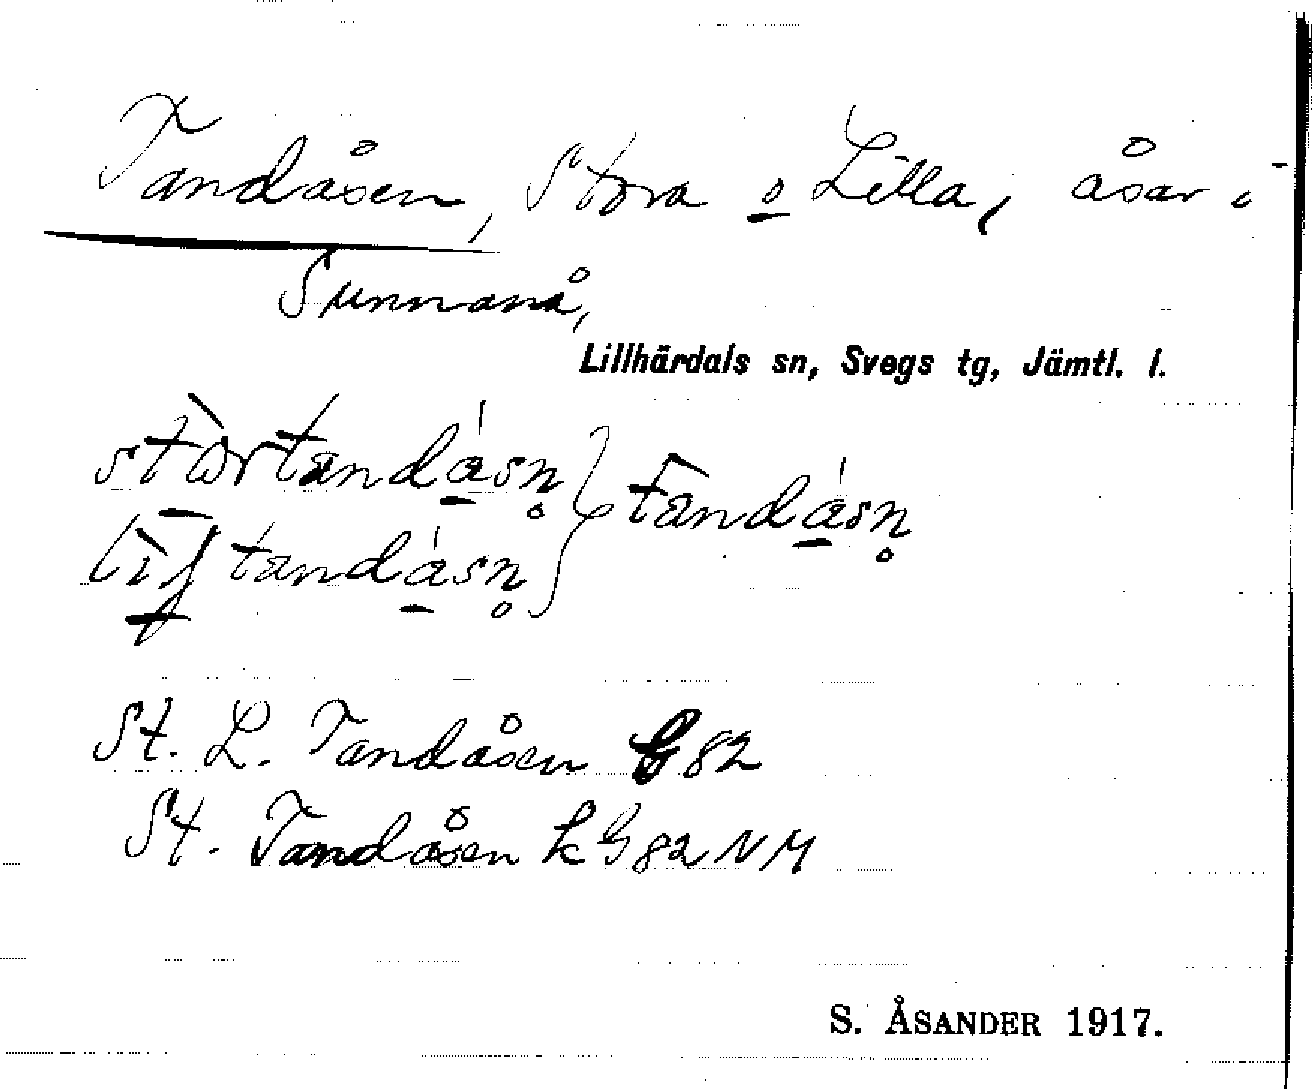 Tandåsen, Stora o Lilla, åsar i
Sunnanå,
Lillhärdals sn, Svegs tg, Jämtl. l.
tandåsn
tandåsn
St. L. Tandåsen G 82
St. Tandåsen k G 82 NM
S. ÅSANDER 1917.